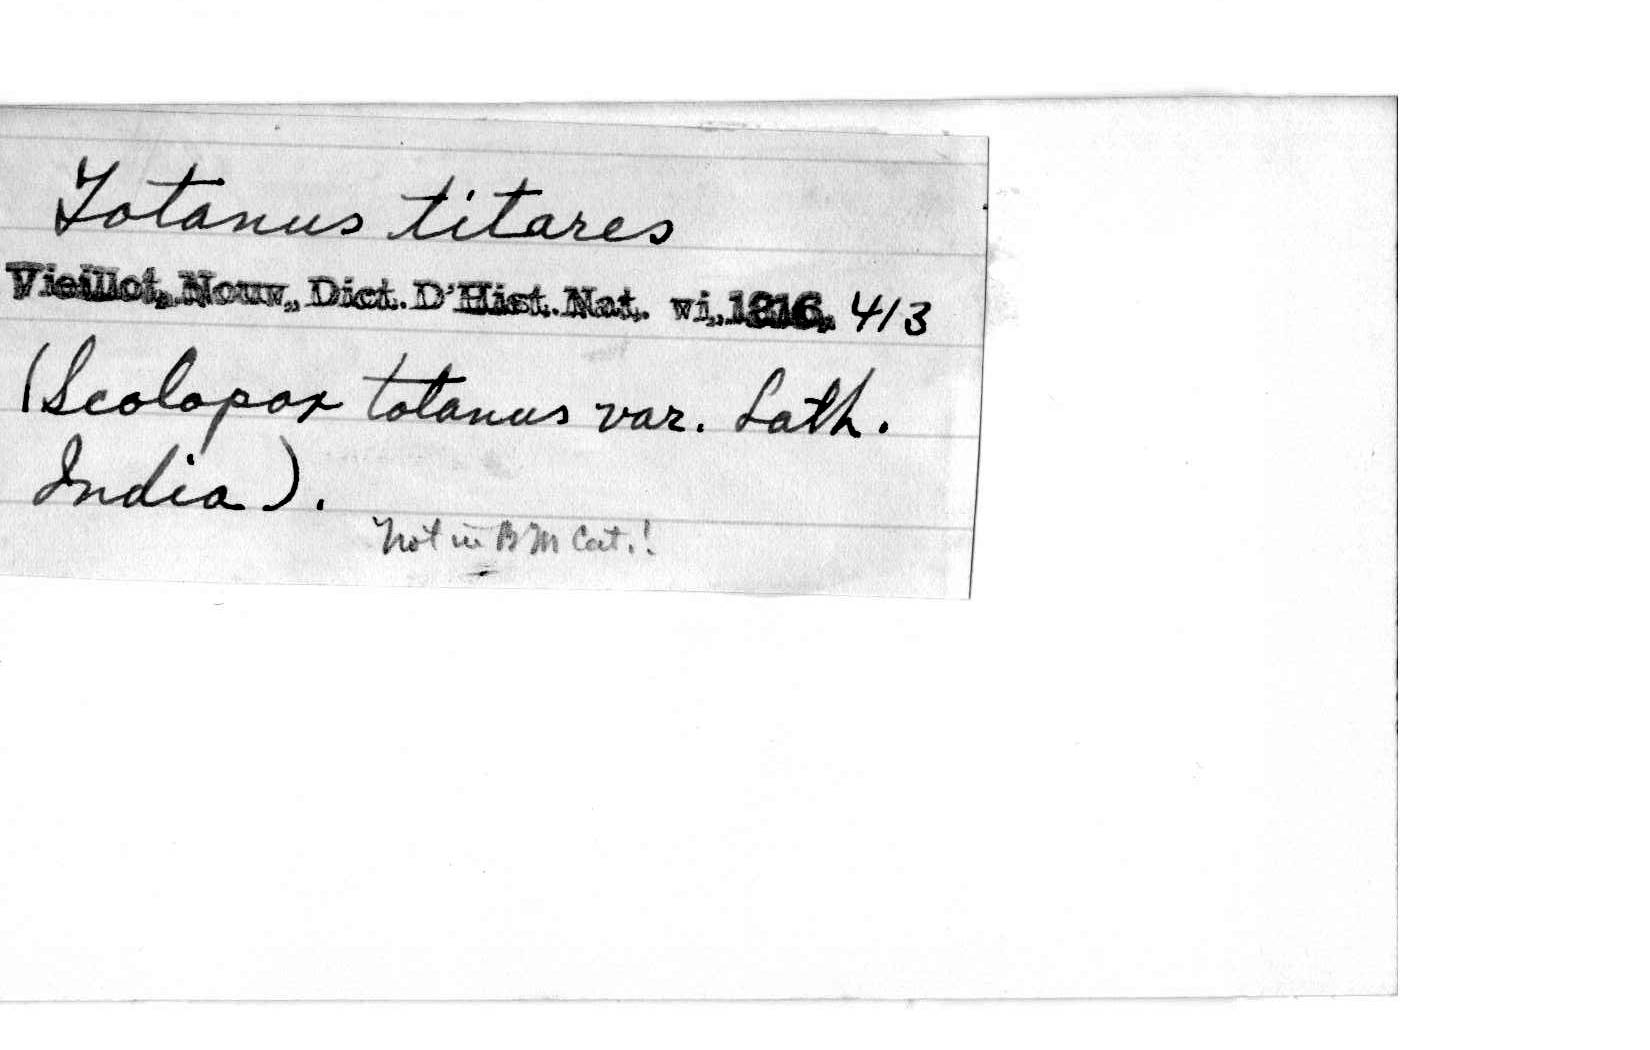 Totanus titares
Vieillot, Nouv. Dict. D'Hist. Nat. vi, 1816, 413
(Scolopax totanus var. Lath.
India).
Not in BM Cat.!